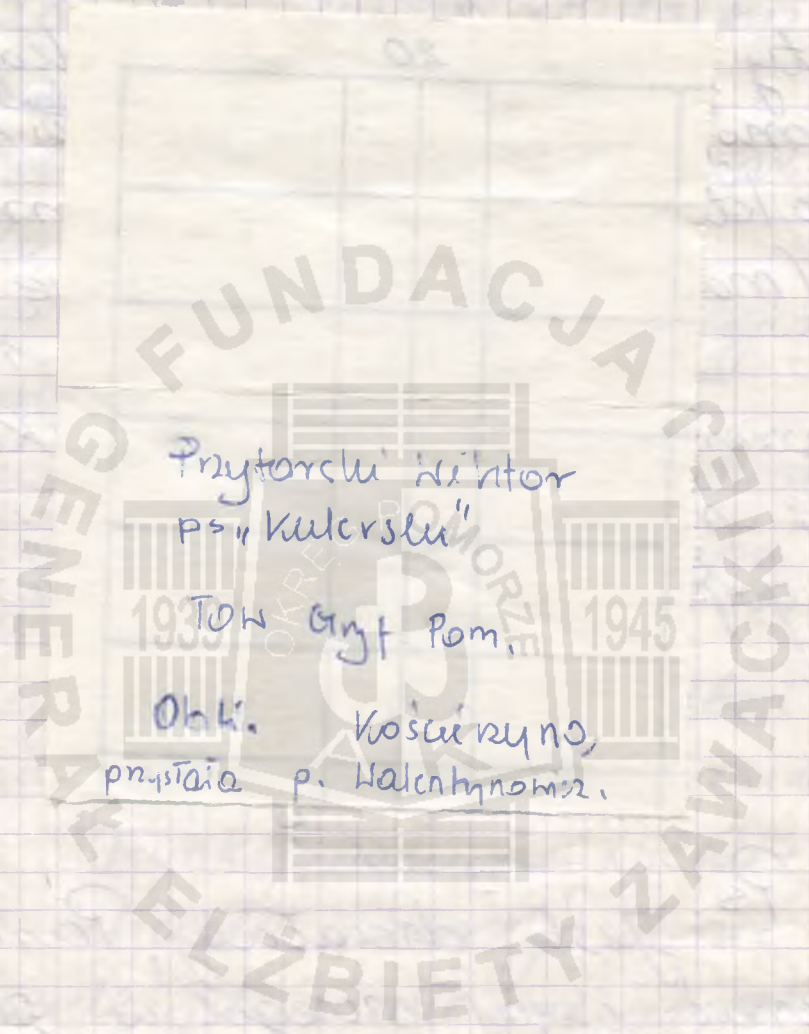 Przytorski Wiktor
ps „Kulerski"
TOW Gryf Pom.
Kościerzyna,
przysłała p. Walentynowicz.
FUNDACJA
GENERAŁ ELŻBIETY ZAWACKIEJ
OKRĘG POMORZE
1939 1945
AK